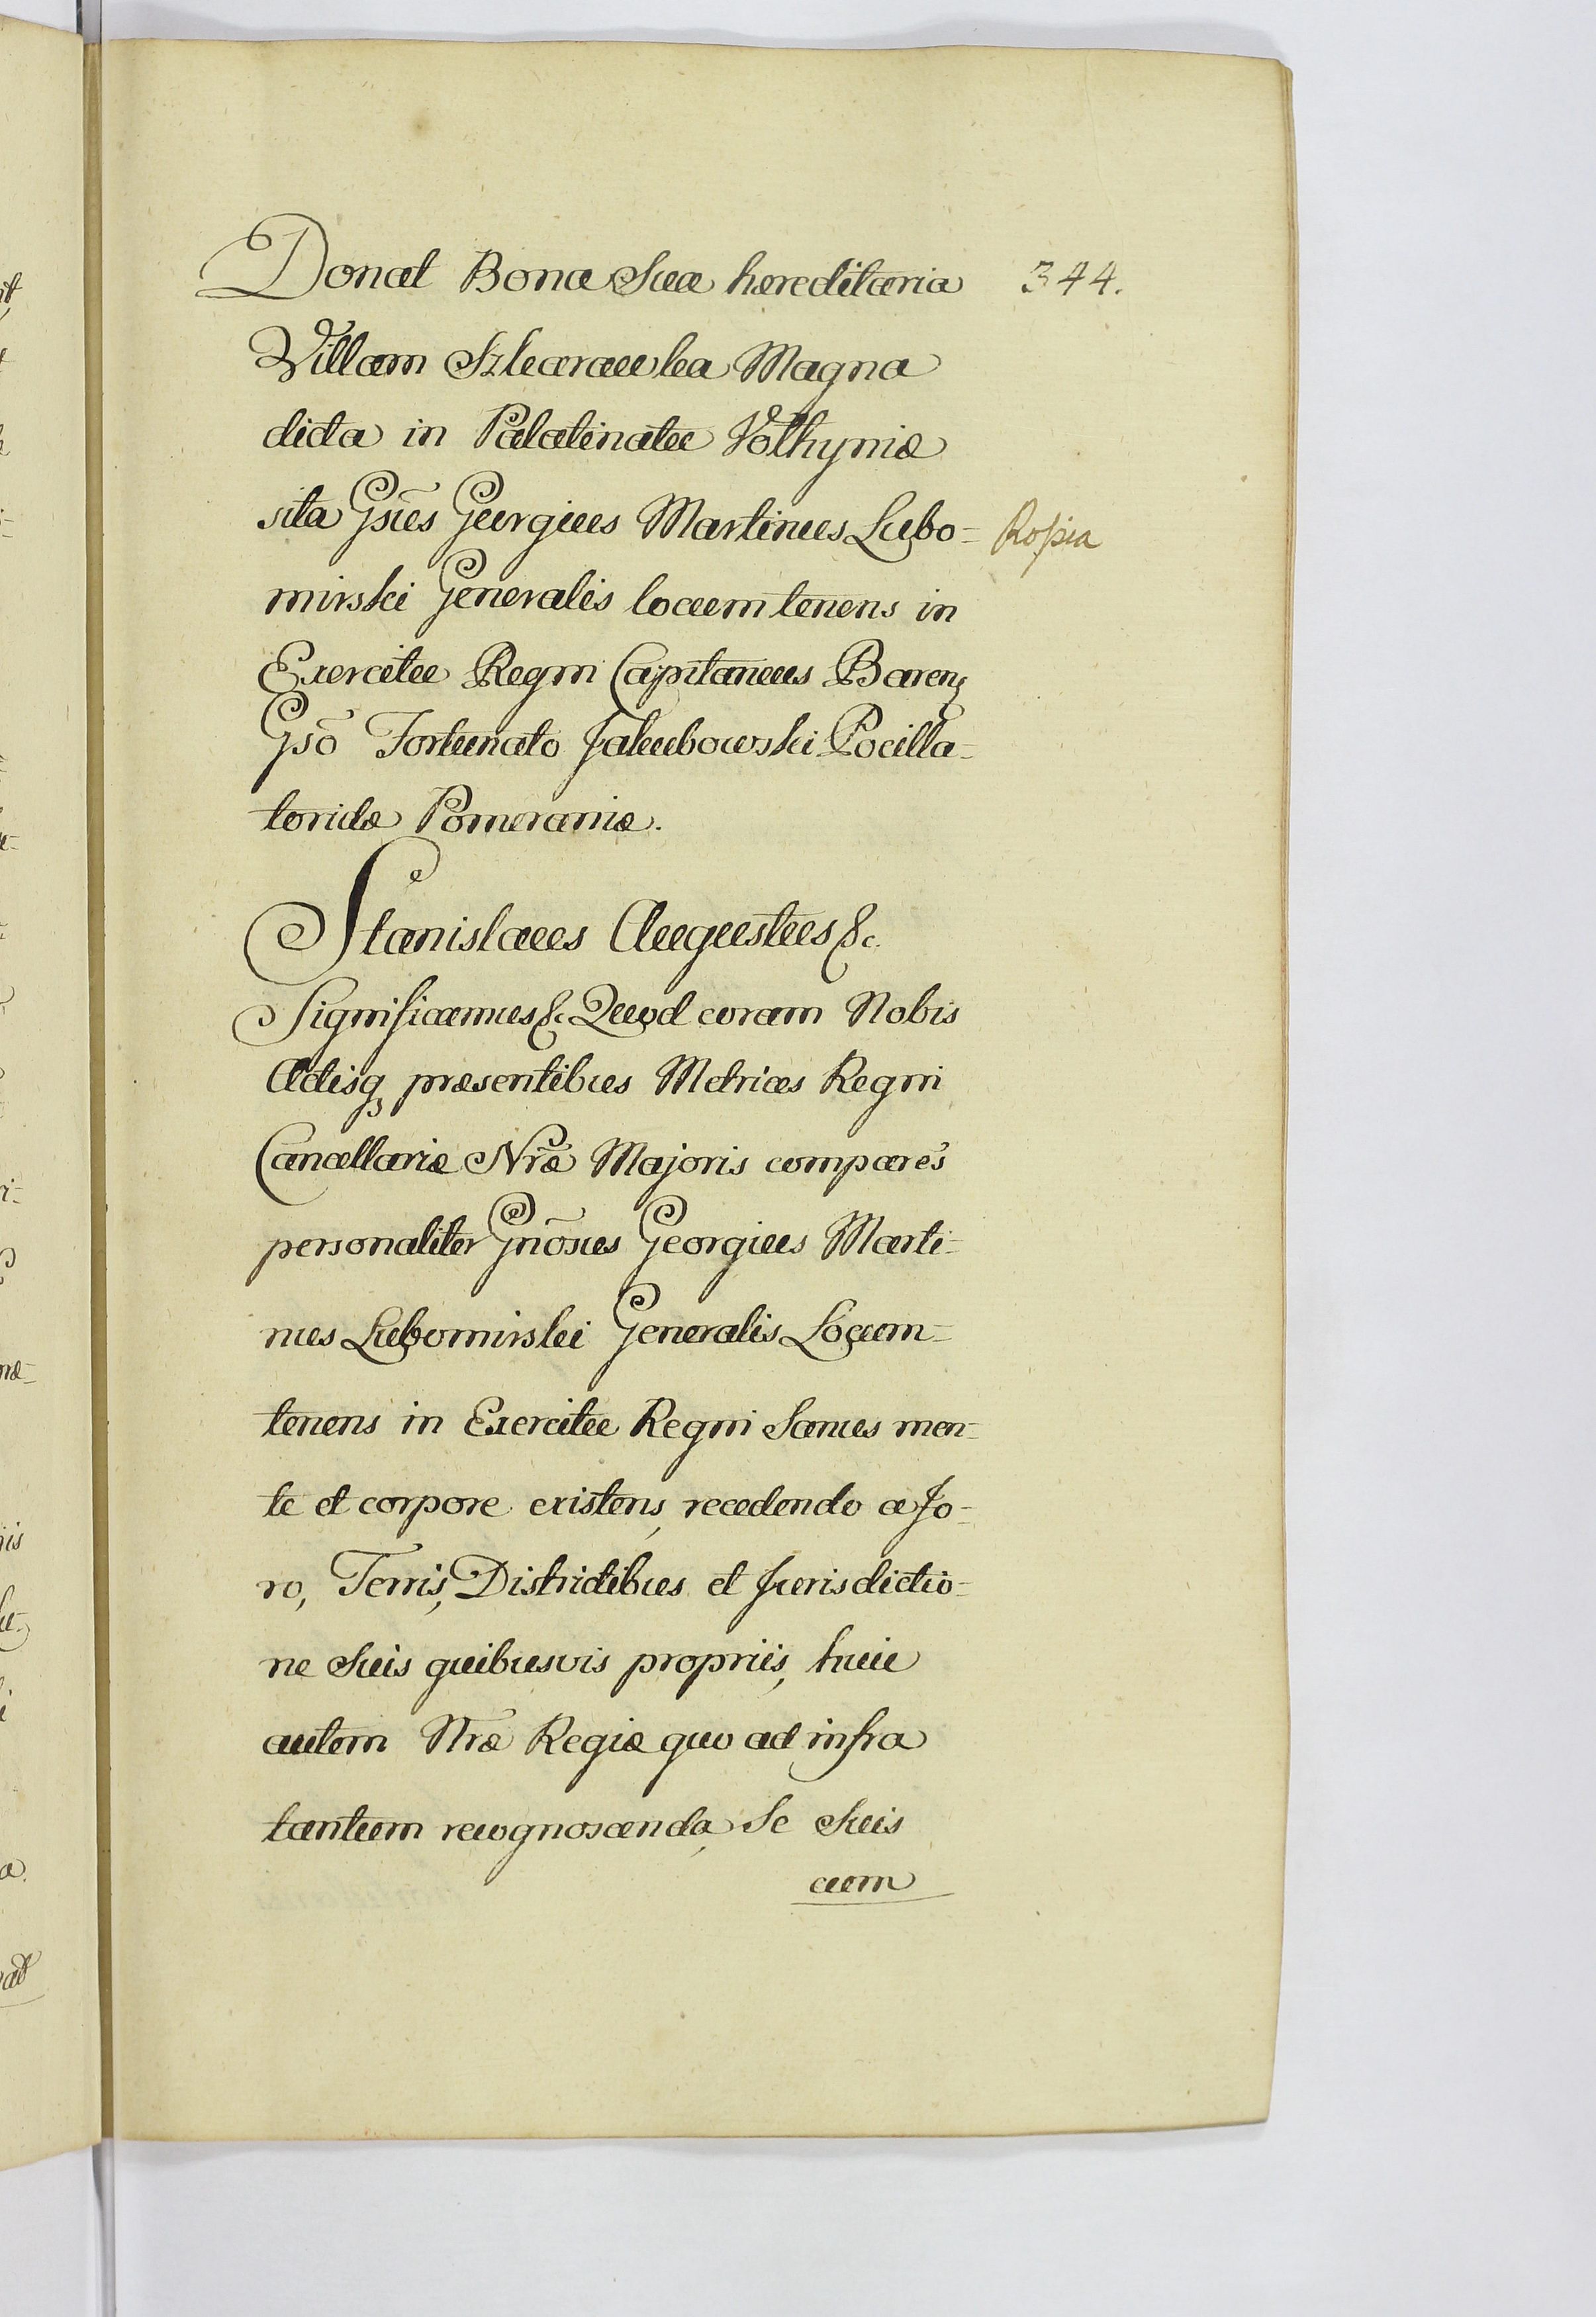 Donat Bona Sua hæreditaria 344.
Villam Szkarawka Magna
dicta in Palatinatu Volhyniæ
sita Gsūs Georgius Martinus Lubo=
Kopia
mirski Generalis locumtenens in
Exercitu Regni Capitaneus Baren₃
Gsō Fortunato Jakubowski Pocilla=
toridæ Pomeraniæ.
Stanislaus Augustus &c.
Significamus &c. Quod coram Nobis
Actisq₃ præsentibus Metrices Regni
Cancellariæ Nrǣ Majoris comparēs
personaliter Gnōsus Georgius Marti=
nus Lubomirski Generalis Locum=
tenens in Exercitu Regni Sanus men=
te et corpore existens, recedendo a Fo=
ro, Terris, Districtibus et Jurisdictio=
ne Suis quibusvis propriis, huic
autem Nrǣ Regiæ quo ad infra
tantum recognoscenda, Se Suis
cum